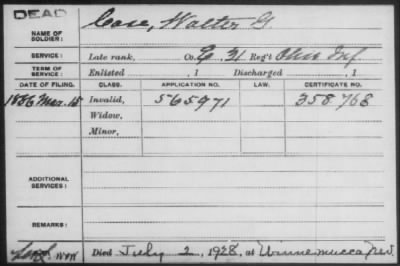 DEAD
NAME OF SOLDIER: Case, Walter G.
SERVICE: Late rank, Co. G. 31 Reg't Ohio Inf
TERM OF SERVICE: Enlisted , 1 Discharged , 1
DATE OF FILING. CLASS. APPLICATION NO. LAW. CERTIFICATE NO.
1886 Mar. 15 Invalid, 565971 358768
Widow,
Minor,
ADDITIONAL SERVICES:
REMARKS:
WOW Died July 2, 1928, at Winnemucca Nev.